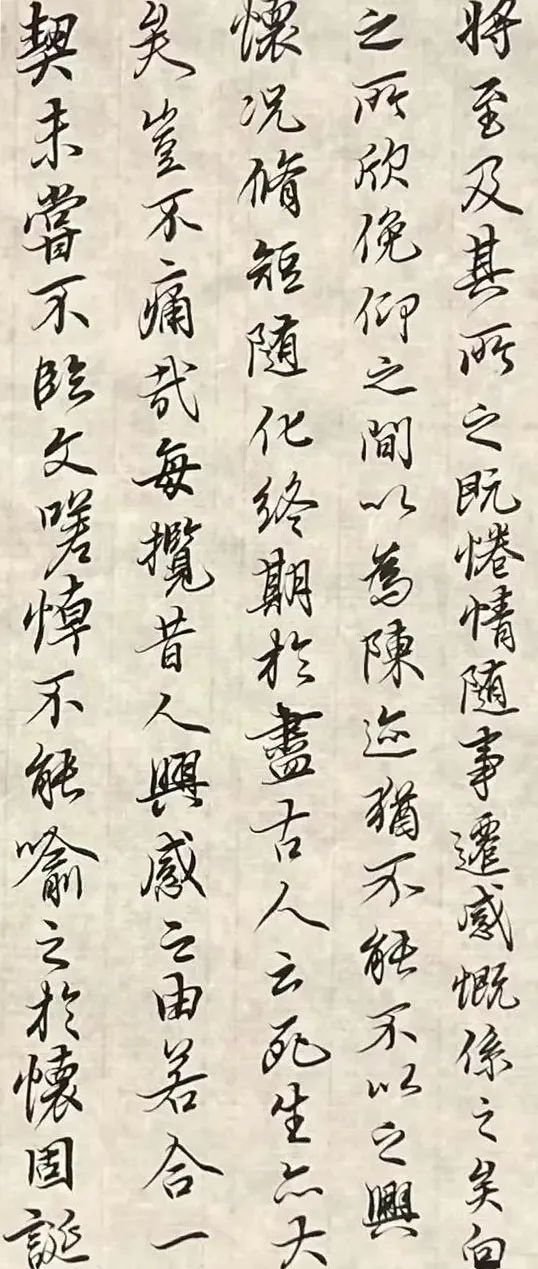 将至及其所之既惓情随事遷感慨係之矣向
之所欣俛仰之間以為陳迹猶不能不以之興
懷况脩短随化終期於盡古人云死生亦大
矣豈不痛哉每攬昔人興感之由若合一
契未嘗不臨文嗟悼不能喻之於懷固誕